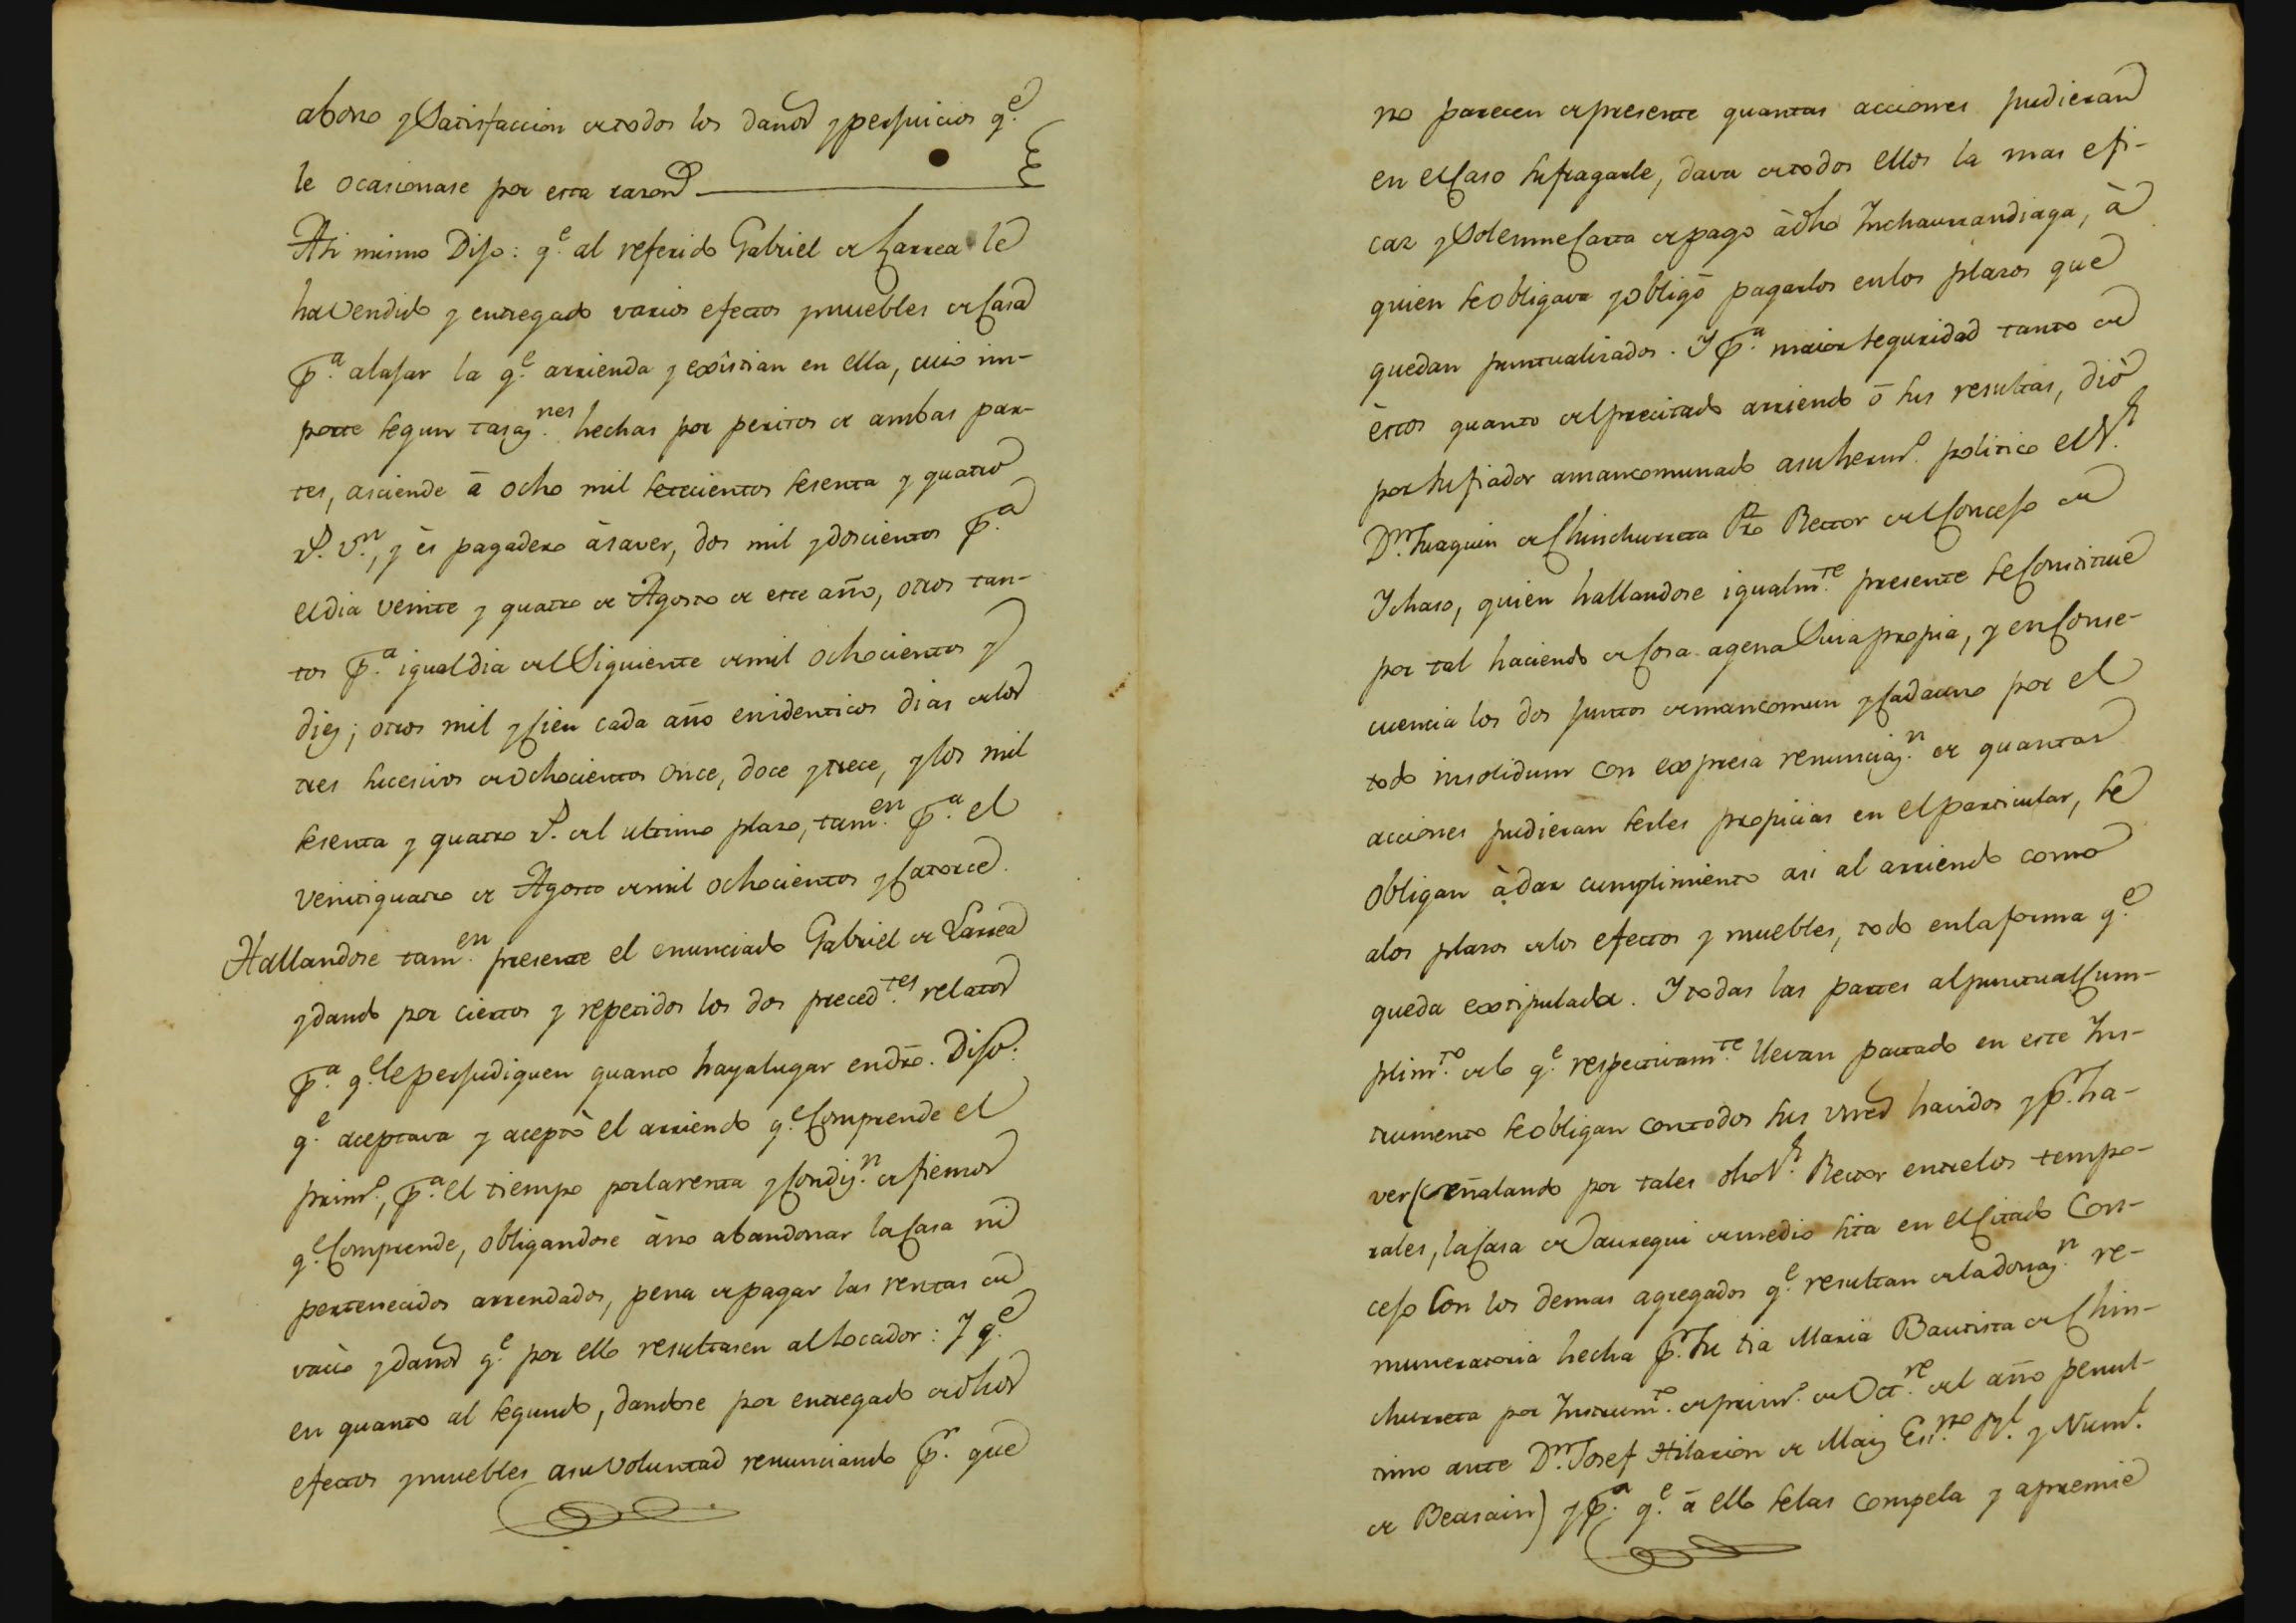 abono y Satisfaccion de todos los daños y perjuicios q.e
le ocasionase por esta razon
Asi mismo Dijo: q.e al referido Gabriel de Larrea le
ha vendido y entregado varios efectos y muebles de Casa
p.a alajar la q.e arrienda y existian en ella, cuio im-
porte segun tasaz.nes hechas por peritos de ambas par-
tes, asciende à ocho mil setecientos sesenta y quatro
r.s v.n, y és pagadero à saver, dos mil y doscientos p.a
el dia veinte y quatro de Agosto de este año, otros tan-
tos p.a igual dia del Siguiente de mil ochocientos y
diez; otros mil y Cien cada año en identicos dias de los
tres sucesivos de ochocientos once, doce y trece, y los mil
sesenta y quatro r.s del ultimo plazo, tam.en p.a el
veintiquatro de Agosto de mil ochocientos y Catorce.
Hallandose tam.en presente el enunciado Gabriel de Larrea
y dando por ciertos y repetidos los dos preced.tes relatos
p.a q.e le perjudiquen quanto haya lugar en dro. Dijo:
q.e aceptava y aceptò el arriendo q.e Comprende el
prim.o, p.a el tiempo por la renta y Condiz.n de fiemos
q.e Comprende, obligandose à no abandonar la Casa ni
pertenecidos arrendados, pena de pagar las rentas de
vacio y daños q.e por ello resultasen al Locador: Y q.e
en quanto al segundo, dandose por entregado de dhos
efectos y muebles a su voluntad renunciando p.r que
no parecen de presente quantas acciones pudieran
en el Caso sufragarle, dava de todos ellos la mas efi-
caz y Solemne Carta de pago à dho Inchaurrandiaga, à
quien se obligava y obligó pagarlos en los plazos que
quedan puntualizados. Y p.a maior seguridad tanto de
èstos quanto del precitado arriendo ó sus resultas, diò
por su fiador amancomunado a su herm.o politico el S.r
D.n Juaquin de Chinchurreta Pro Rector del Concejo de
Ichaso, quien hallandose igualm.te presente se Constitue
por tal haciendo de Cosa agena Suia propia, y en Conse-
cuencia los dos juntos de mancomun y Cada uno por el
todo insolidum con expresa renunciaz.n de quantas
acciones pudieran serles propicias en el particular, se
obligan à dar cumplimiento asi al arriendo como
a los plazos de los efectos y muebles, todo en la forma q.e
queda extipulada. Y todas las partes al puntual Cum-
plim.to de lo q.e respectivam.te llevan pactado en este Ins-
trumento se obligan con todos sus vnes havidos y p.r ha-
ver (señalando por tales dho S.r Rector entre los tempo-
rales, la Casa de Jauregui de medio sita en el Citado Con-
cejo Con los demas agregados q.e resultan de la donaz.n re-
muneratoria hecha p.r su tia Maria Bautista de Chin-
churreta por Instrum.to de prim.o de Oct.re del año penul-
timo ante D.n Josef Hilarion de Maiz Ess.no R.l y Num.l
de Beasain) y p.a q.e à ello selas compela y apremie